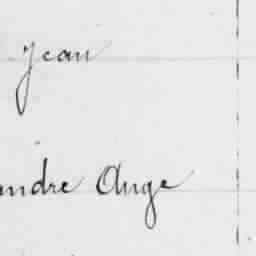 Jean
andre Ange